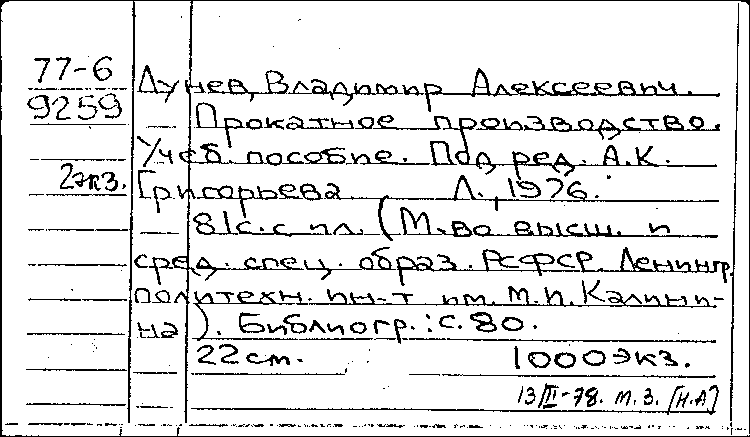 77-6
9259
2экз.
Лунев, Владимир Алексеевич.
Прокатное производство.
Учеб. пособие. Под ред. А.К.
Григорьева Л., 1976.
81с. с ил. (М-во высш. и
сред. спец. образ. РСФСР. Ленингр.
политехн. ин-т им. М.И. Калини-
на). Библиогр.: с. 80.
22 см. 1000 экз.
13/III-78. М.З. [Н.А]